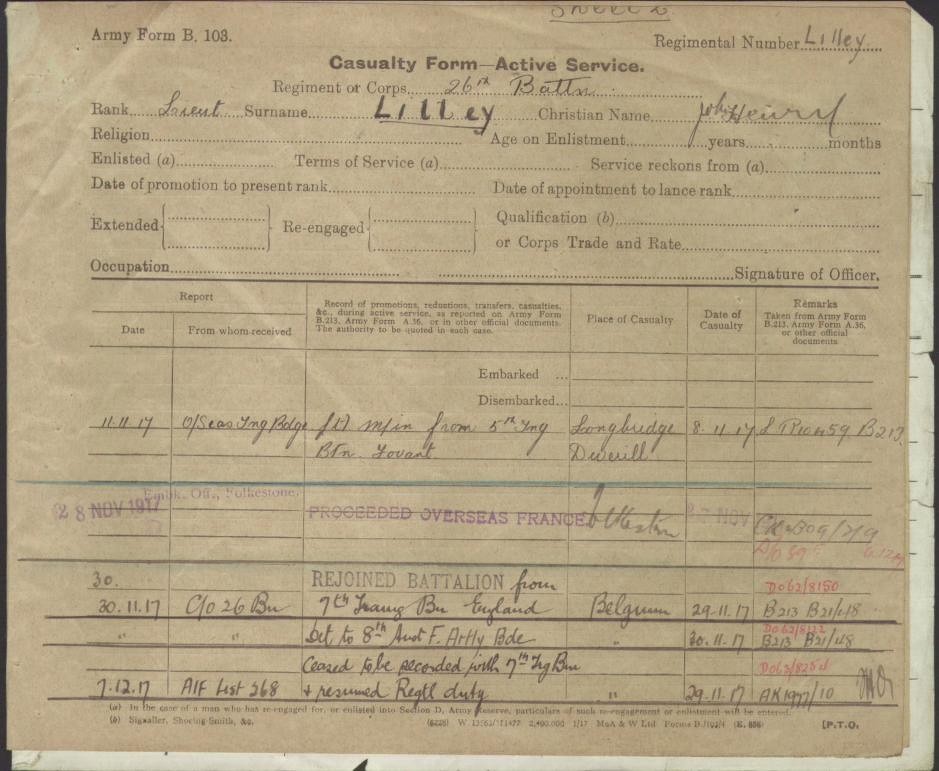 Sheet 2
Army Form B. 103.
Regimental Number Lilley
Casualty Form—Active Service.
Regiment or Corps 26th Battn
Rank Lieut Surname Lilley Christian Name John Henry
Religion Age on Enlistment years months
Enlisted (a) Terms of Service (a) Service reckons from (a)
Date of promotion to present rank Date of appointment to lance rank
Extended Re-engaged Qualification (b)
or Corps Trade and Rate
Occupation Signature of Officer.
Report
Date
From whom received
Record of promotions, reductions, transfers, casualties,
&c., during active service, as reported on Army Form
B.213, Army Form A.36, or in other official documents.
The authority to be quoted in each case.
Place of Casualty
Date of
Casualty
Remarks
Taken from Army Form
B.213, Army Form A.36,
or other official
documents
Embarked ...
Disembarked...
11.11.17 O/Seas Tng Bdge m/in from 5th Tng Longbridge 8.11.17 B213
Btn. Fovant Deverill
28 NOV 1917 Embk. Off., Folkestone. PROCEEDED OVERSEAS FRANCE 27 NOV
30. REJOINED BATTALION from DO62/8150
30.11.17 C/o 26 Bn 7th Traing Bn England Belgium 29.11.17 B213 B21/48
" " Det to 8th Aust F. Arty Bde " 30.11.17 DO62/8122 B213 B21/48
Ceased to be recorded with 7th Tg Bn
7.12.17 AIF List 268 + resumed Regtl duty " 29.11.17 AK1997/10
(a) In the case of a man who has re-engaged for, or enlisted into Section D, Army Reserve, particulars of such re-engagement or enlistment will be entered.
(b) Signaller, Shoeing-Smith, &c. 2,400,000 1/17 McA & W Ltd (E. 856) [P.T.O.